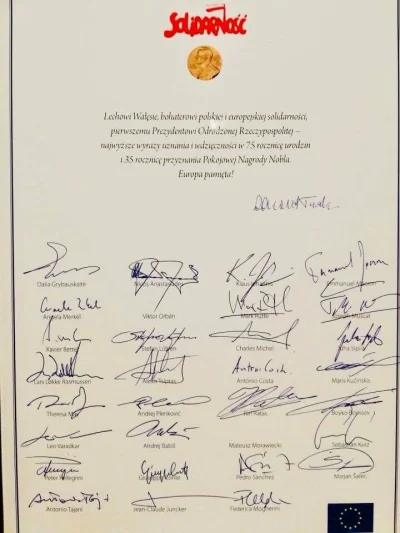 SOLIDARNOŚĆ
Lechowi Wałęsie, bohaterowi polskiej i europejskiej solidarności,
pierwszemu Prezydentowi Odrodzonej Rzeczypospolitej –
najwyższe wyrazy uznania i wdzięczności w 75 rocznicę urodzin
i 35 rocznicę przyznania Pokojowej Nagrody Nobla.
Europa pamięta!
Dalia Grybauskaitė Nicos Anastasiades Klaus Iohannis Emmanuel Macron
Angela Merkel Viktor Orbán Mark Rutte Joseph Muscat
Xavier Bettel Stefan Löfven Charles Michel Juha Sipilä
Lars Løkke Rasmussen Alexis Tsipras António Costa Māris Kučinskis
Theresa May Andrej Plenković Jüri Ratas Boyko Borissov
Leo Varadkar Andrej Babiš Mateusz Morawiecki Sebastian Kurz
Peter Pellegrini Giuseppe Conte Pedro Sánchez Marjan Šarec
Antonio Tajani Jean-Claude Juncker Federica Mogherini